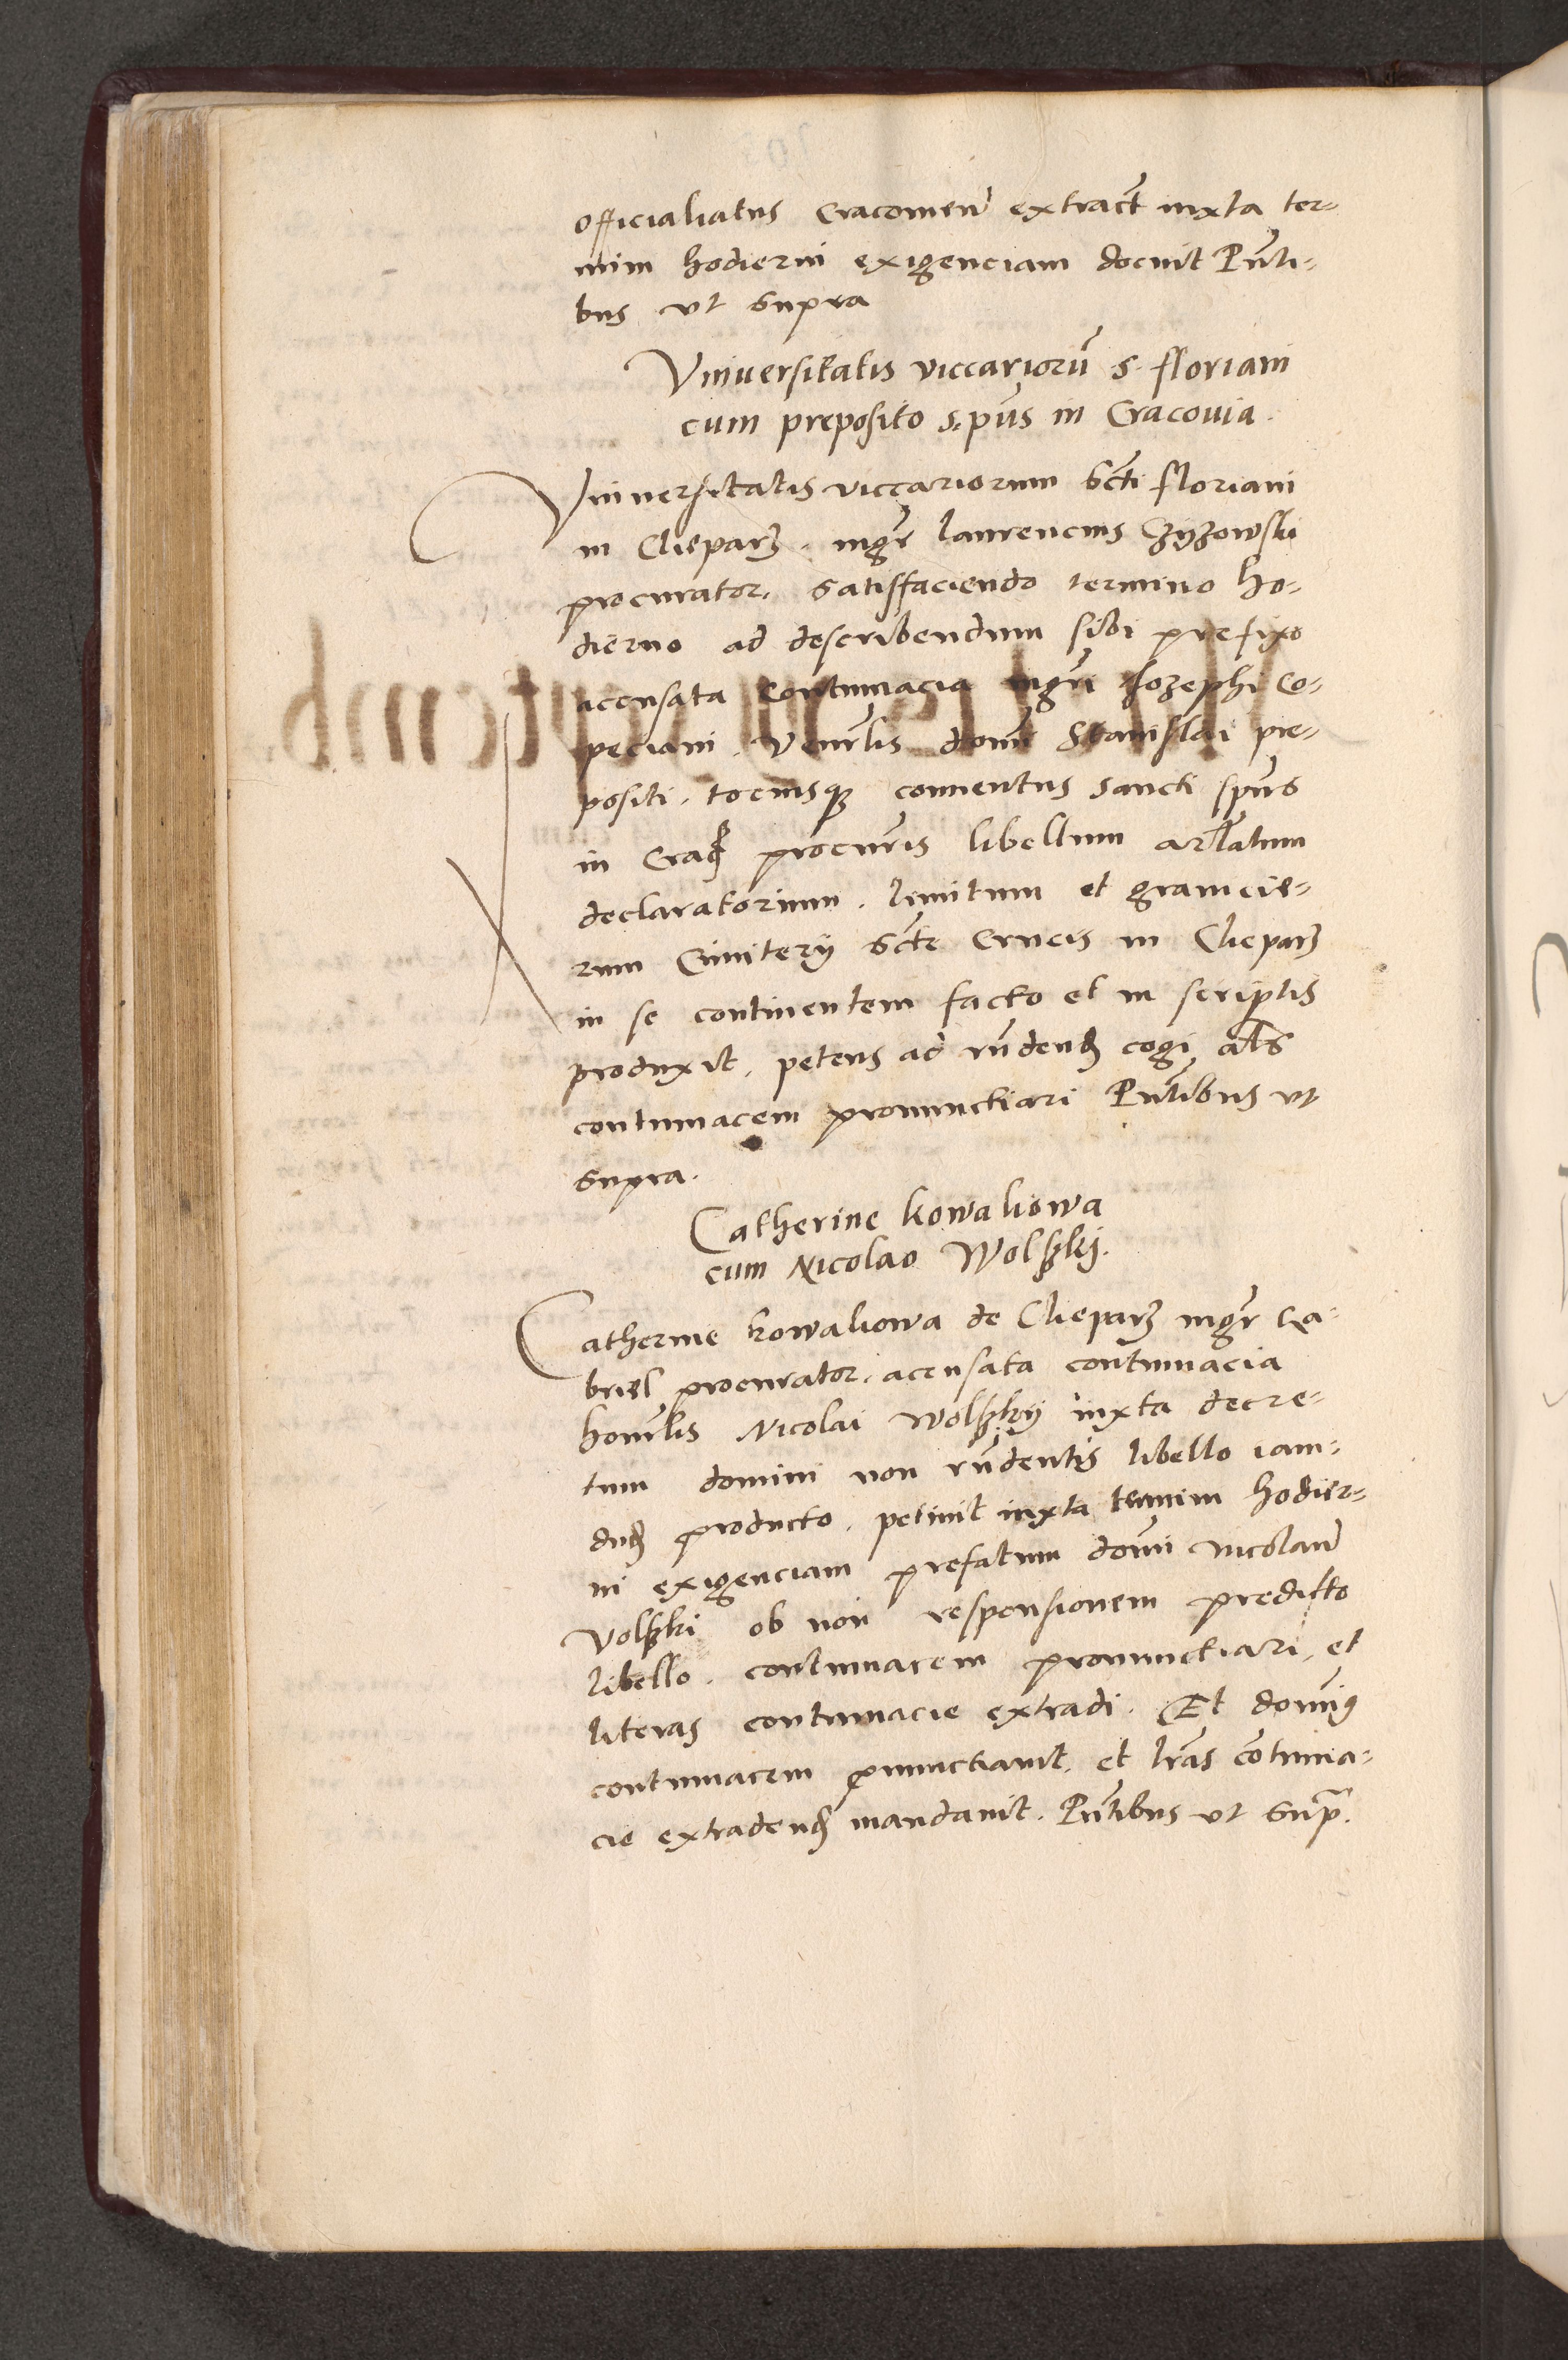 officialiatus Cracouien̄ extract̄ iuxta ter-
mini hodierni exigenciam docuit Pn̄ti-
bus vt supra
Vniuersitatis viccariorū s. floriani
cum preposito s. pūs in Cracouia.
Vniuersitatis viccariorum sc̄ti floriani
in Clieparz. mgr̄ laurencius Czyzowski
procurator. satisfaciendo termino ho-
dierno ad describendum sibi prefixo
accusata contumacia mgr̄i Jozephi Co-
peciani. Venīlis domī Stanislai pre-
positi. tociusq3 conuentus sancti spūs
in Crac̄ procur̄is libellum artl̄atum
declaratorium. limitum et granicie-
rum Cimitery sc̄te Crucis in Clieparz
in se continentem facto et in scriptis
produxit. petens ad rn̄dend̄ cogi al̄s
contumacem pronunctiari Pn̄tibus vt
supra.
Catherine kowaliowa
cum Nicolao Wolsky.
Catherine kowaliowa de Clieparz mgr̄ Ga-
briel procurator. accusata contumacia
honīlis Nicolai Wolsky iuxta decre-
tum domini non rn̄dentis libello iam-
dud̄ producto. petiuit iuxta termini hodier-
ni exigenciam prefatum domī Nicolaū
Volski ob non responsionem predicto
libello. contumacem pronunctiari. et
literas contumacie extradi. Et domin9
contumacem pnunctiauit. et lr̄as cōtuma-
cie extradend̄ mandauit. Pn̄tibus vt sup̄.